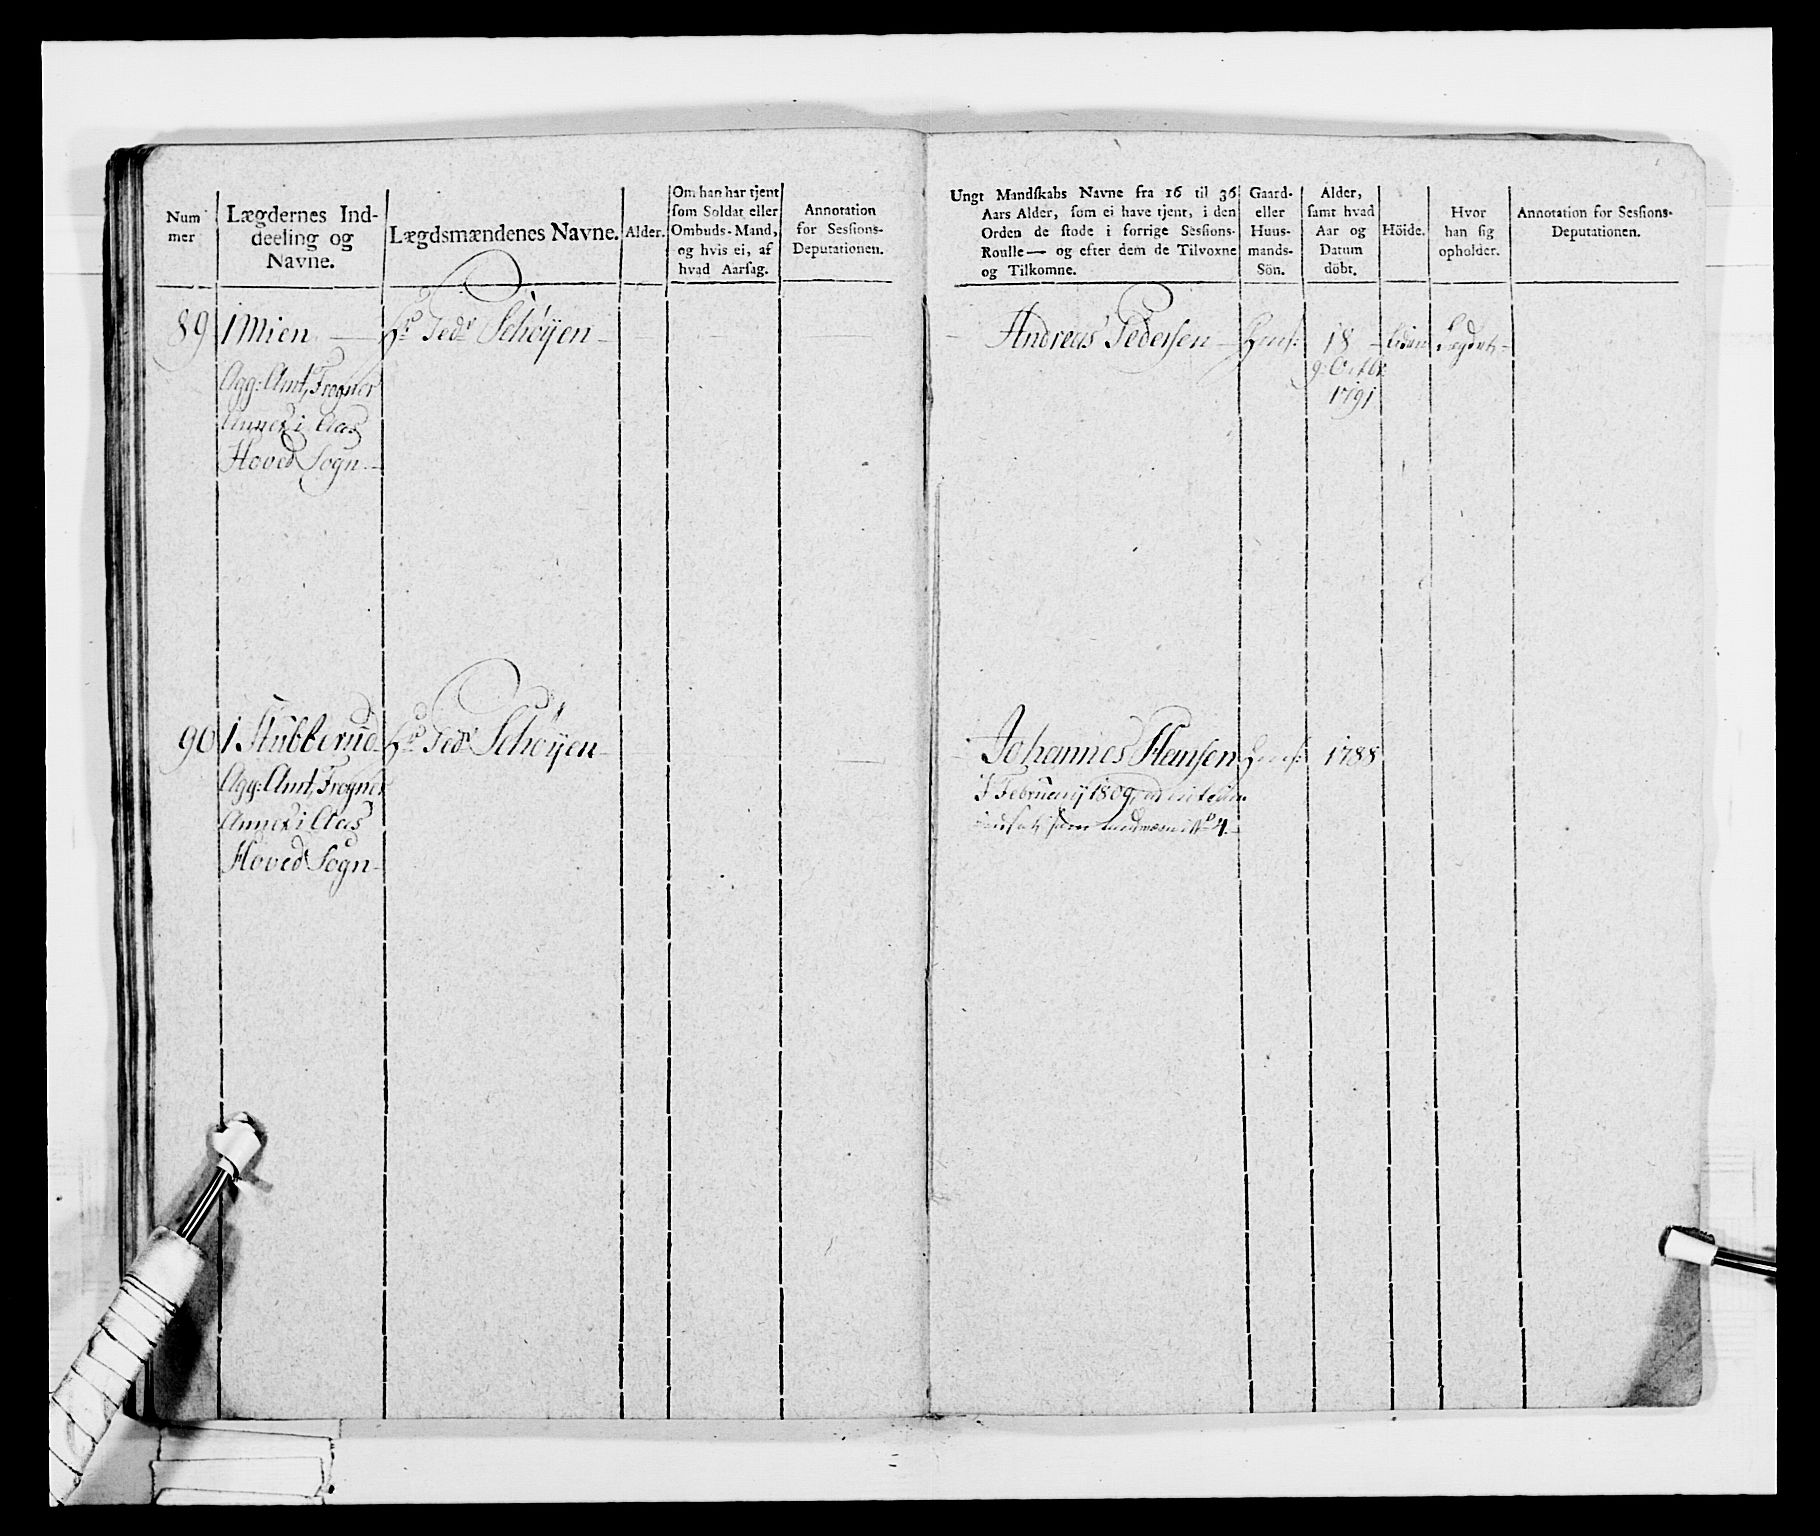 Num
mer
Lægdernes Ind-
deeling og
Navne.
Lægdsmændenes Navne.
Alder.
Om han har tjent
som Soldat eller
Ombuds-Mand,
og hvis ei, af
hvad Aarsag.
Annotation
for Sessions-
Deputationen.
Ungt Mandskabs Navne fra 16 til 36
Aars Alder, som ei have tjent, i den
Orden de stode i forrige Sessions-
Roulle — og efter dem de Tilvoxne
og Tilkomne.
Gaard-
eller
Huus-
mands-
Sön.
Alder,
samt hvad
Aar og
Datum
döbt.
Höide.
Hvor
han sig
opholder.
Annotation for Sessions-
Deputationen.
89 1 Mien Hr Pedr Schöyen
Agg: Amt, Frogner
Annex i Aas
Hoved Sogn
Andreas Pedersen 18
9: Octbr
1791
90 1 Stubberud Hr Pedr Schöyen
Agg: Amt, Frogner
Annex i Aas
Hoved Sogn
Johannes Hansen 1788
I February 1809
4